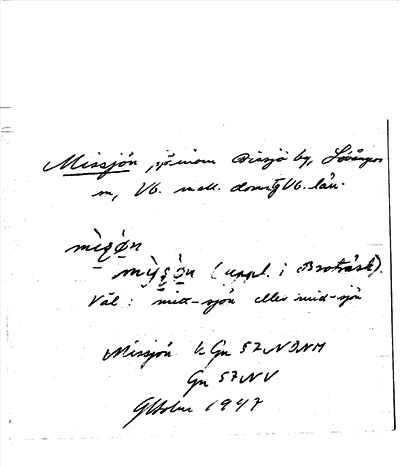 Missjön, sjö inom Bissjö by, Lövångers
sn, Vb. mell. domsg Vb. län.
mìʂø̀n
mỳʂø̀n (uppl. i Broträsk).
Väl: mitt-sjön eller mid-sjön
Missjön k Gn 57 NV INM
Gn 57 NV
GHolm 1947